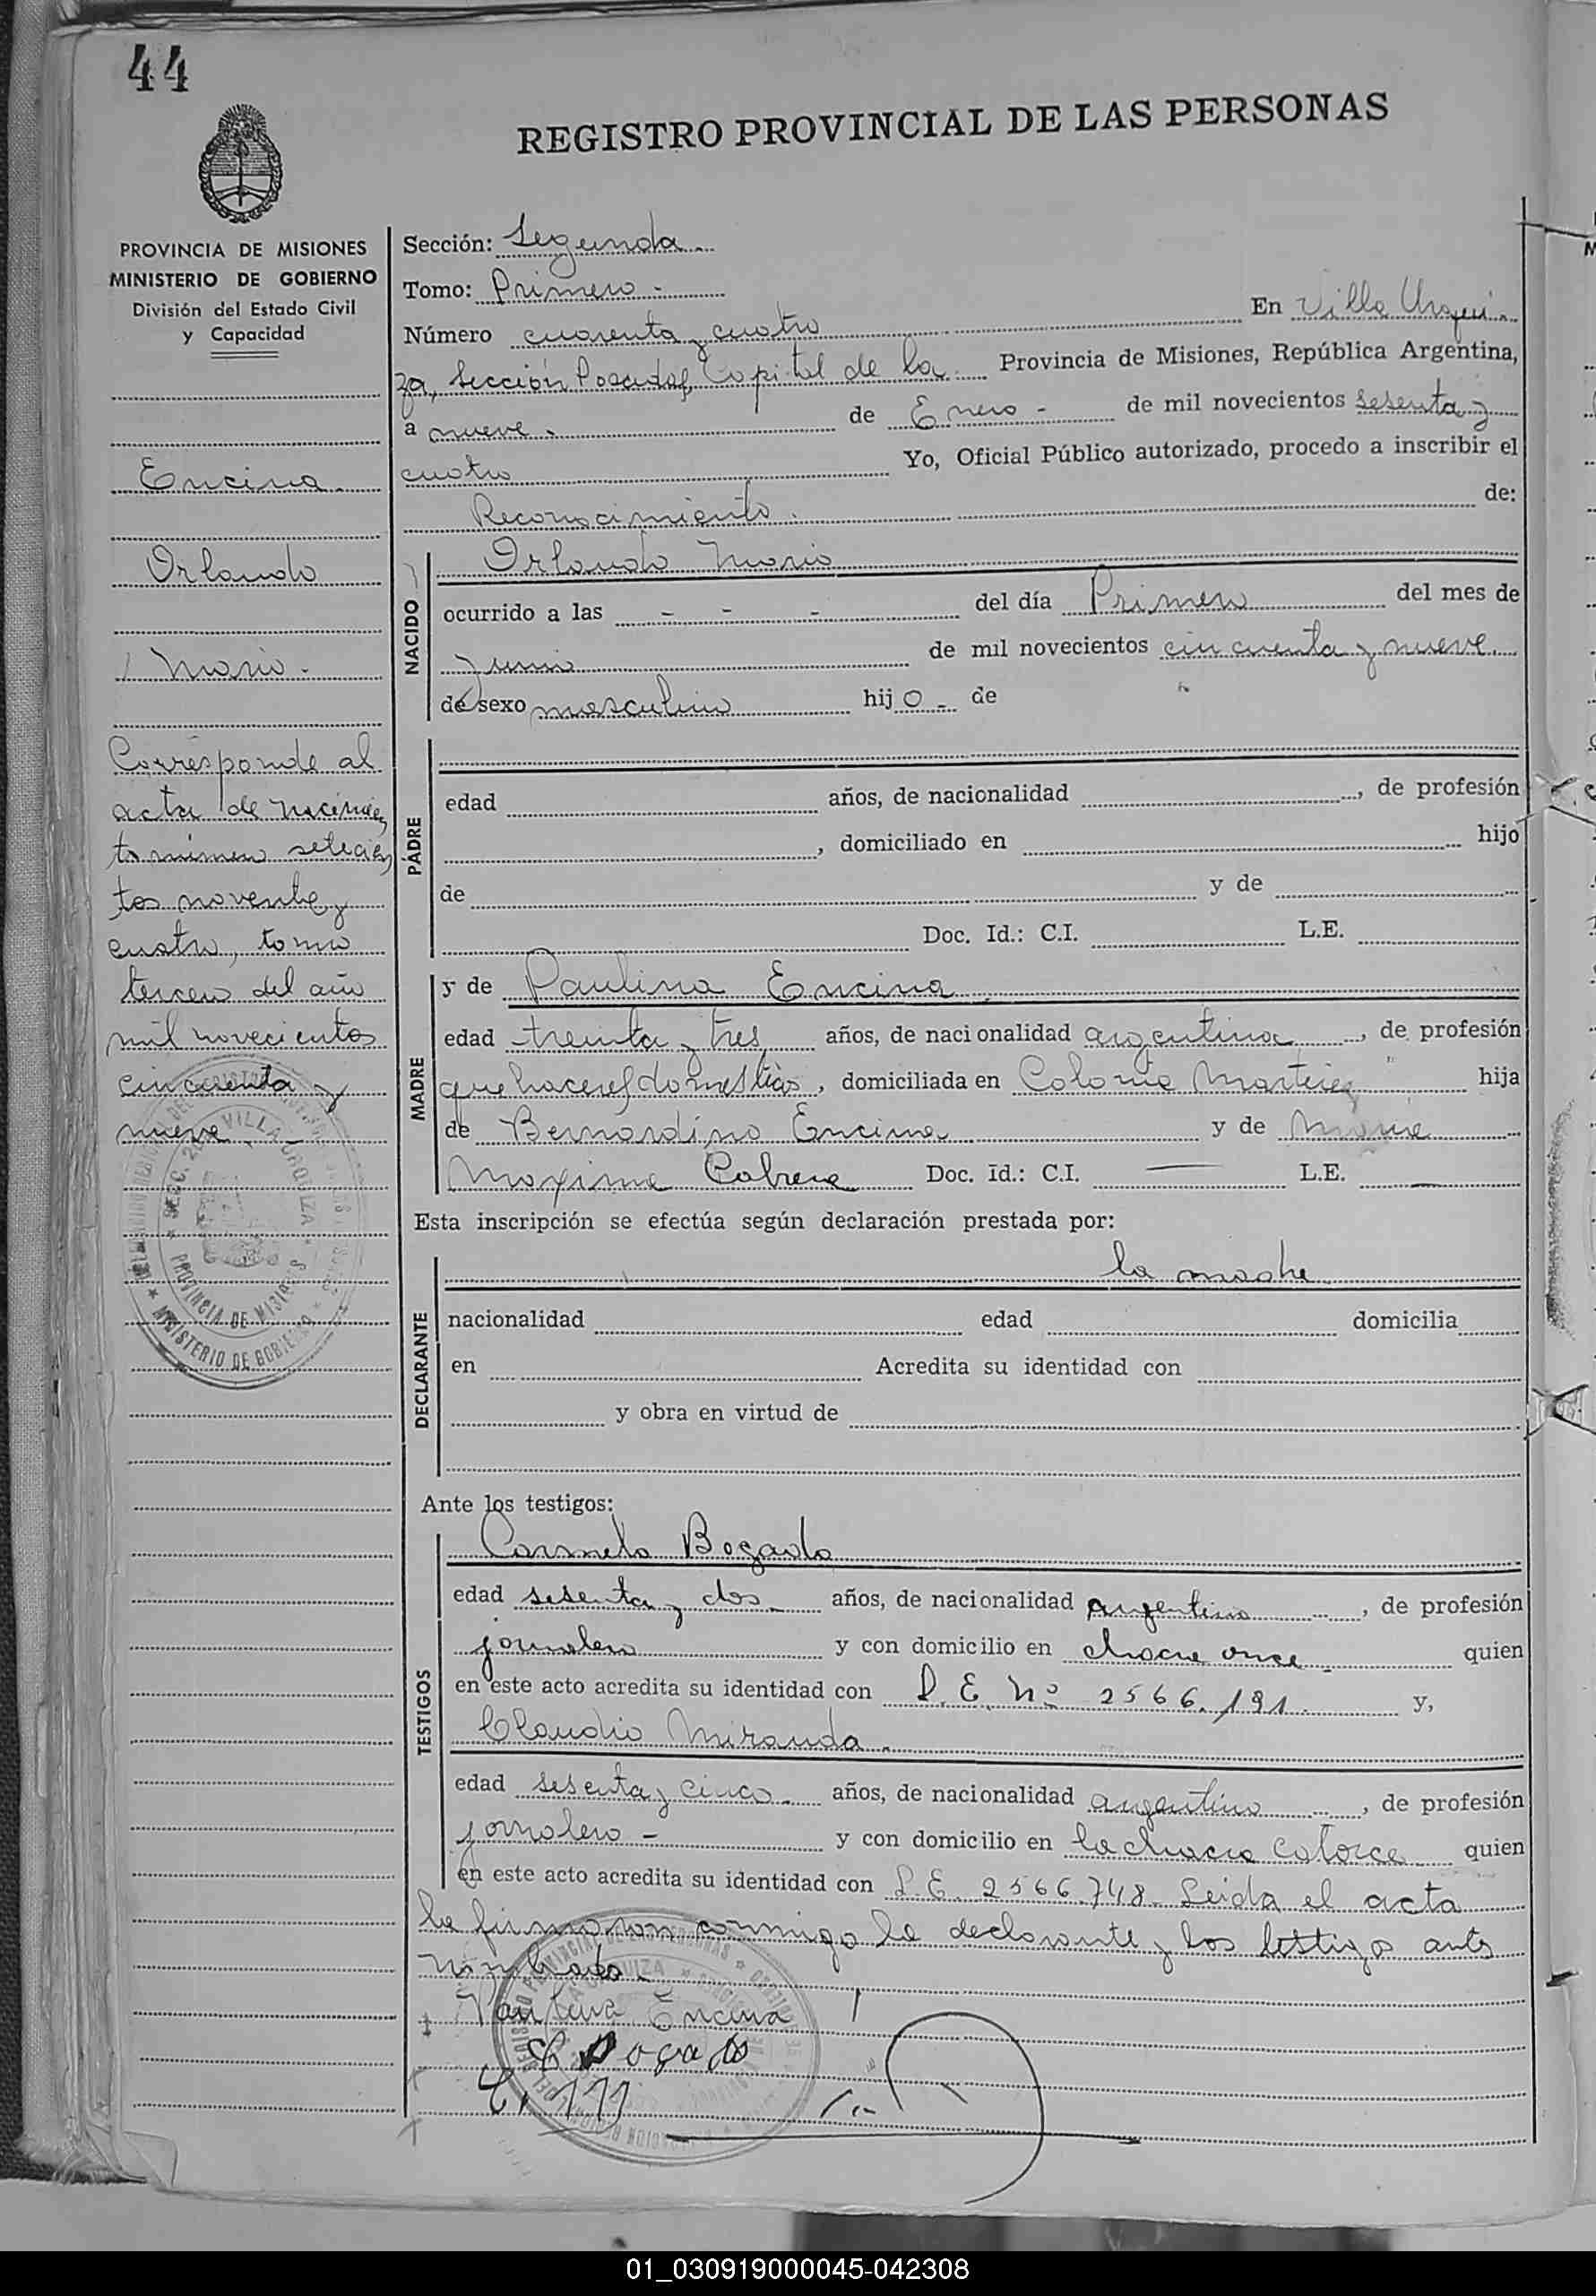 44
REGISTRO PROVINCIAL DE LAS PERSONAS
PROVINCIA DE MISIONES
MINISTERIO DE GOBIERNO
División del Estado Civil
y Capacidad
Encina
Orlando
Mario.-
Corresponde al
acta de nacimien
to número setecien
tos noventa y
cuatro, tomo
tercero del año
mil novecientos
cincuenta y
nueve
Sección: Segunda
Tomo: Primero -
Número cuarenta y cuatro En Villa Urqui-
za, Sección Posadas, Capital de la Provincia de Misiones, República Argentina,
a nueve. de Enero - de mil novecientos sesenta y
cuatro Yo, Oficial Público autorizado, procedo a inscribir el
Reconocimiento. de:
NACIDO
Orlando Mario
ocurrido a las - - - del día Primero del mes de
Junio de mil novecientos cincuenta y nueve.
de sexo masculino hijo - de
PADRE
edad años, de nacionalidad , de profesión
, domiciliado en hijo
de y de
Doc. Id.: C.I. L.E.
MADRE
y de Paulina Encina
edad treinta y tres años, de nacionalidad argentina , de profesión
quehaceres domésticos, domiciliada en Colonia Martires hija
de Bernardino Encina y de María
Maxima Cabrera Doc. Id.: C.I. — L.E. —
Esta inscripción se efectúa según declaración prestada por:
DECLARANTE
la madre
nacionalidad edad domicilia
en Acredita su identidad con
y obra en virtud de
Ante los testigos:
TESTIGOS
Carmelo Bogado
edad sesenta y dos años, de nacionalidad argentino , de profesión
jornalero y con domicilio en chacra once - quien
en este acto acredita su identidad con L.E. Nº 2566.191. y,
Claudio Miranda.
edad sesenta y cinco años, de nacionalidad argentino , de profesión
jornalero - y con domicilio en la chacra catorce quien
en este acto acredita su identidad con L.E. 2566.748. Leida el acta
la firmaron conmigo la declarante y los testigos antes
nombrado.-
Paulina Encina
C Bogado
SECC. 2a VILLA URQUIZA
PROVINCIA DE MISIONES
MINISTERIO DE GOBIERNO
01_030919000045-042308